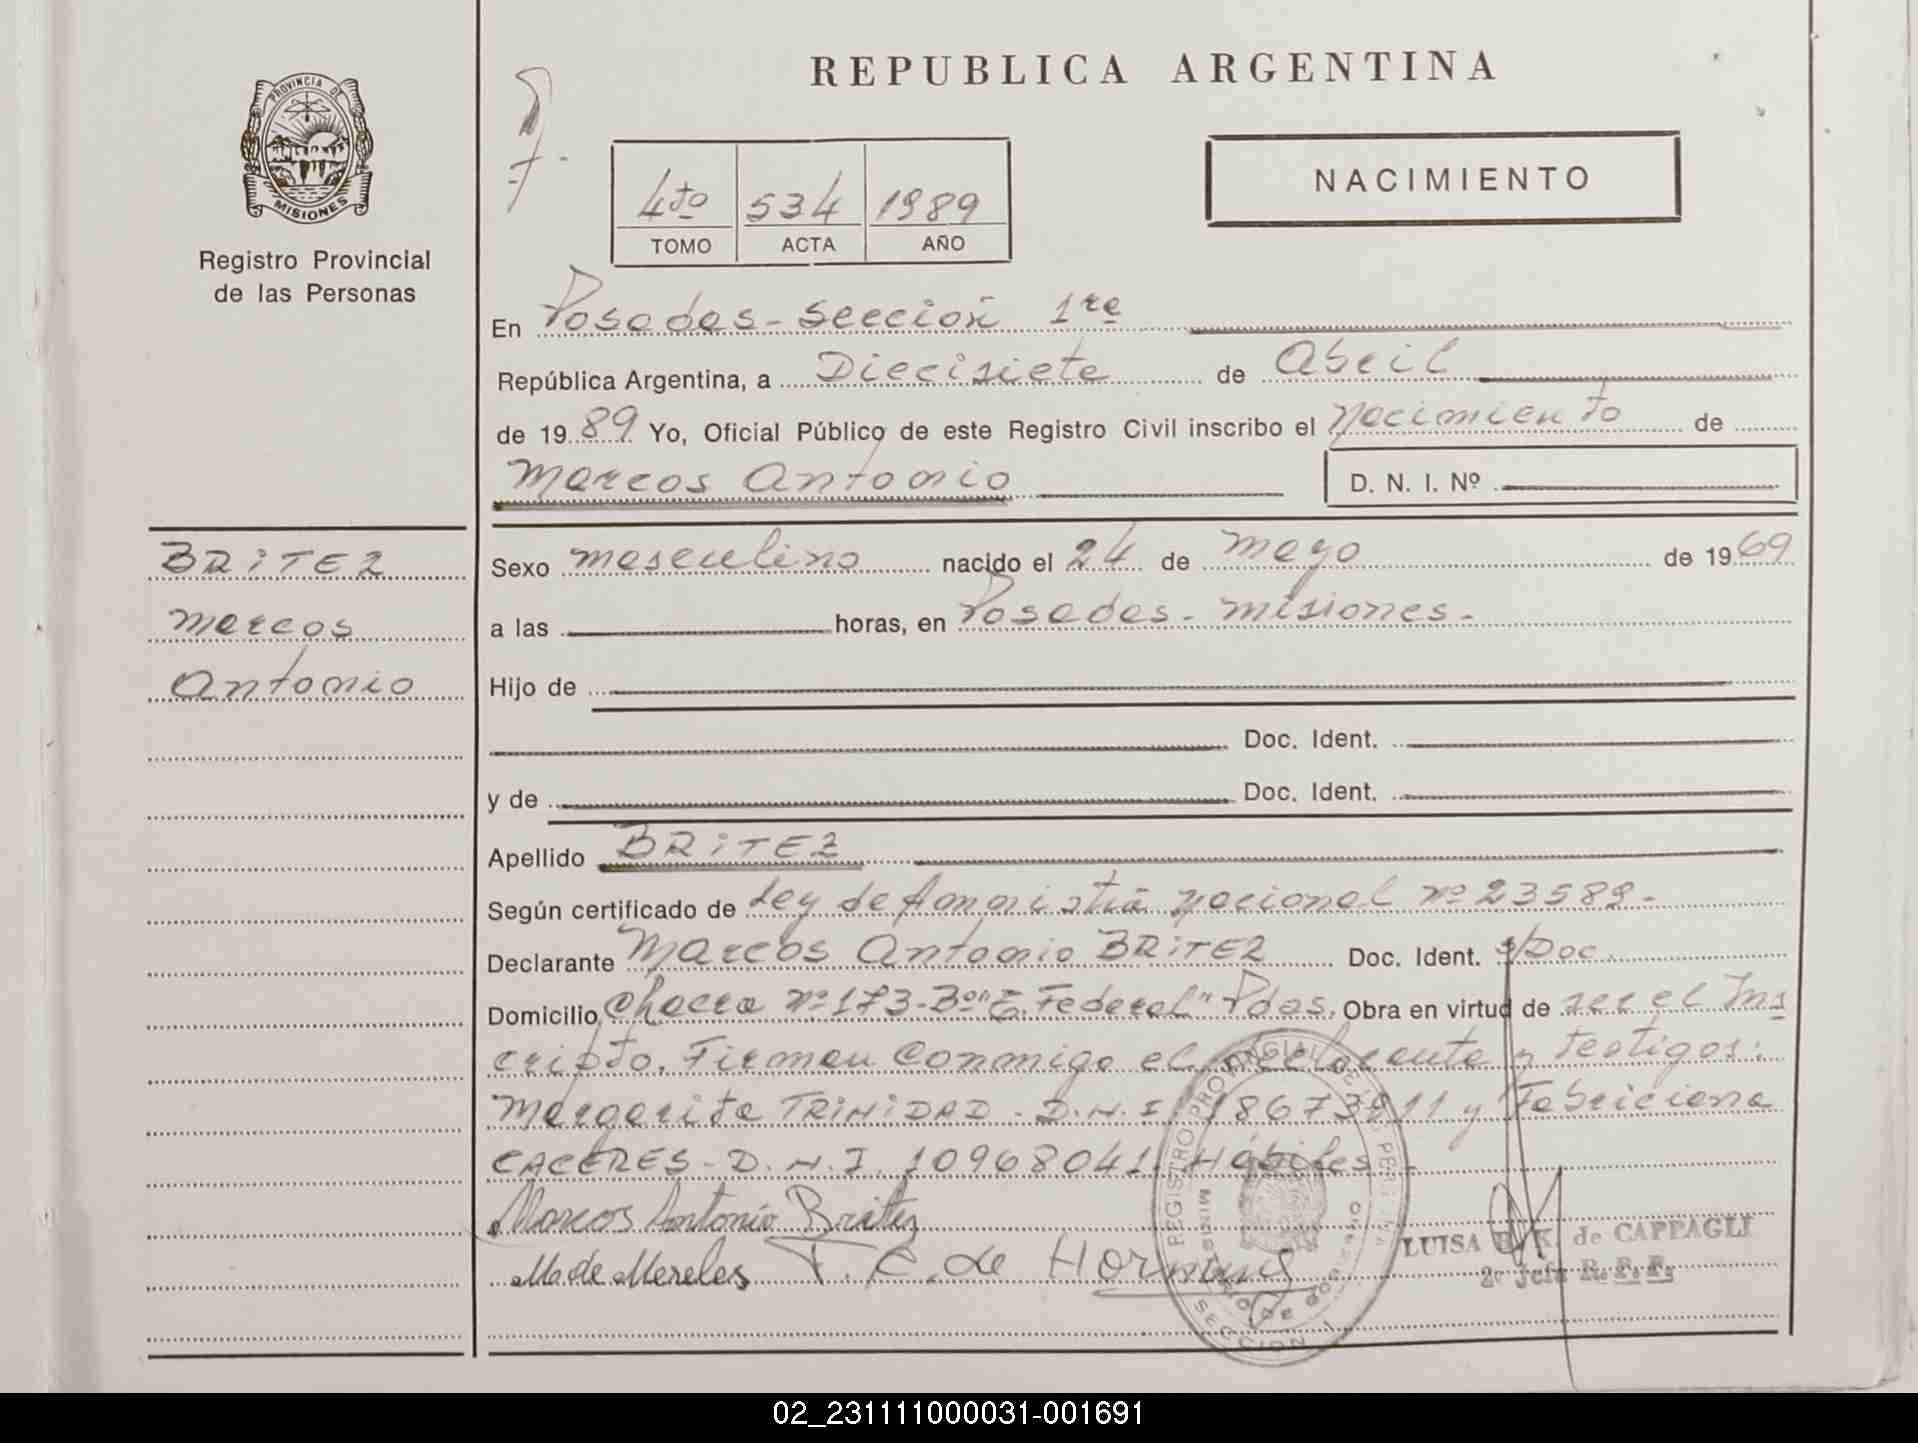 REPUBLICA ARGENTINA
PROVINCIA DE
MISIONES
Registro Provincial
de las Personas
4to 534 1989
TOMO ACTA AÑO
NACIMIENTO
En Posadas - Sección 1ra
República Argentina, a Diecisiete de Abril
de 1989 Yo, Oficial Público de este Registro Civil inscribo el Nacimiento de
Marcos Antonio D. N. I. Nº
BRiTEZ
Marcos
Antonio
Sexo masculino nacido el 24 de Mayo de 1969
a las horas, en Posadas - Misiones -
Hijo de
Doc. Ident.
y de Doc. Ident.
Apellido BRiTEZ
Según certificado de Ley de Amnistia Nacional nº 23589 -
Declarante Marcos Antonio BRiTEZ Doc. Ident. s/Doc.
Domicilio Chacra nº 173 - Bº "E. Federal" Pdas. Obra en virtud de ser el Ins
cripto. Firman conmigo el declarante y testigos:
Margarita TRiNiDAD - D.N.I. y Fabriciana
CACERES - D.N.I. 10968041. Hábiles -
Marcos Antonio Britez
M de Mereles T. C. de
LUISA K. de CAPPAGLI
2º Jefa R. P. P.
REGISTRO PROVINCIAL DE LAS PERSONAS
SECCION 1
02_231111000031-001691